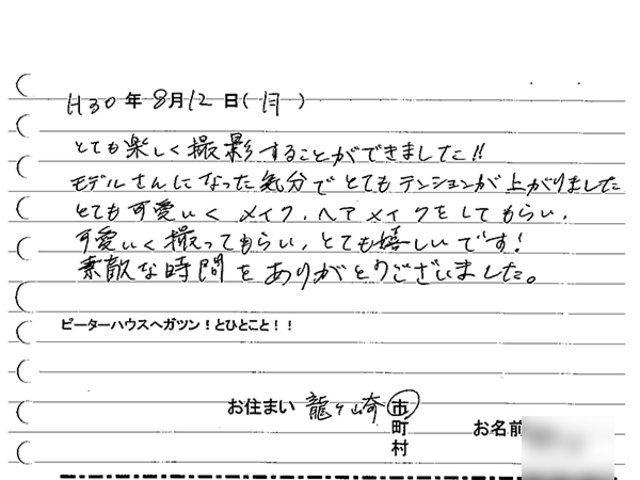 H30年8月12日(月)
とても楽しく撮影することができました!!
モデルさんになった気分でとてもテンションが上がりました
とても可愛いくメイク、ヘアメイクをしてもらい、
可愛いく撮ってもらい、とても嬉しいです!
素敵な時間をありがとうございました。
ピーターハウスへガツン!とひとこと!!
お住まい 龍ヶ崎 市
町
村
お名前